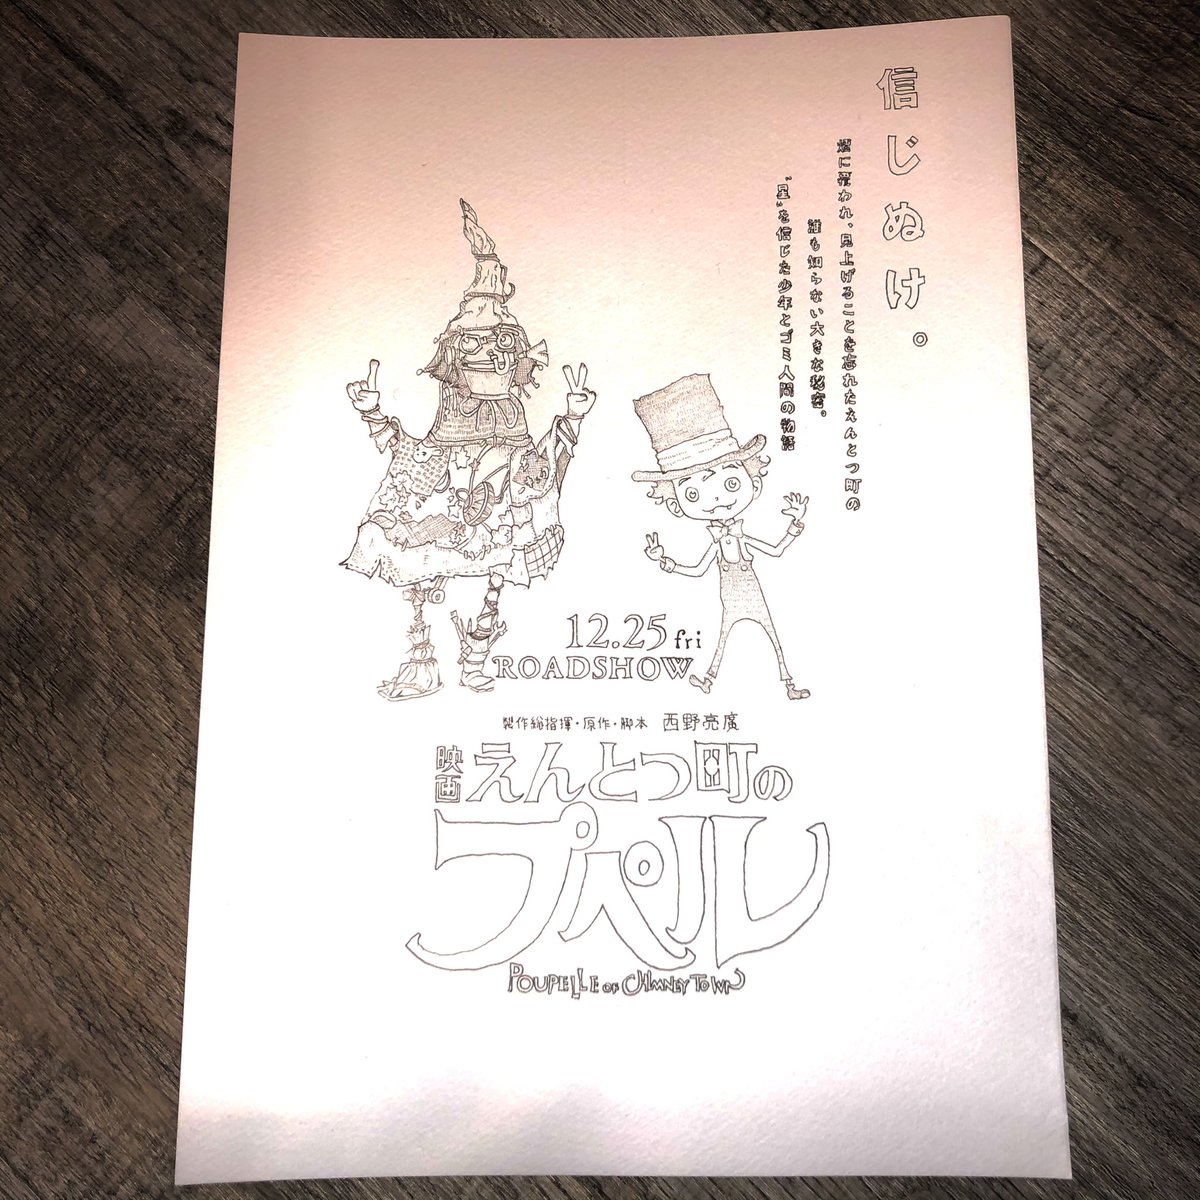 信じぬけ。
煙に覆われ、見上げることを忘れたえんとつ町の
誰も知らない大きな秘密。
"星"を信じた少年とゴミ人間の物語
12.25 fri
ROADSHOW
製作総指揮・原作・脚本 西野亮廣
映画 えんとつ町の
プペル
POUPELLE OF CHIMNEY TOWN